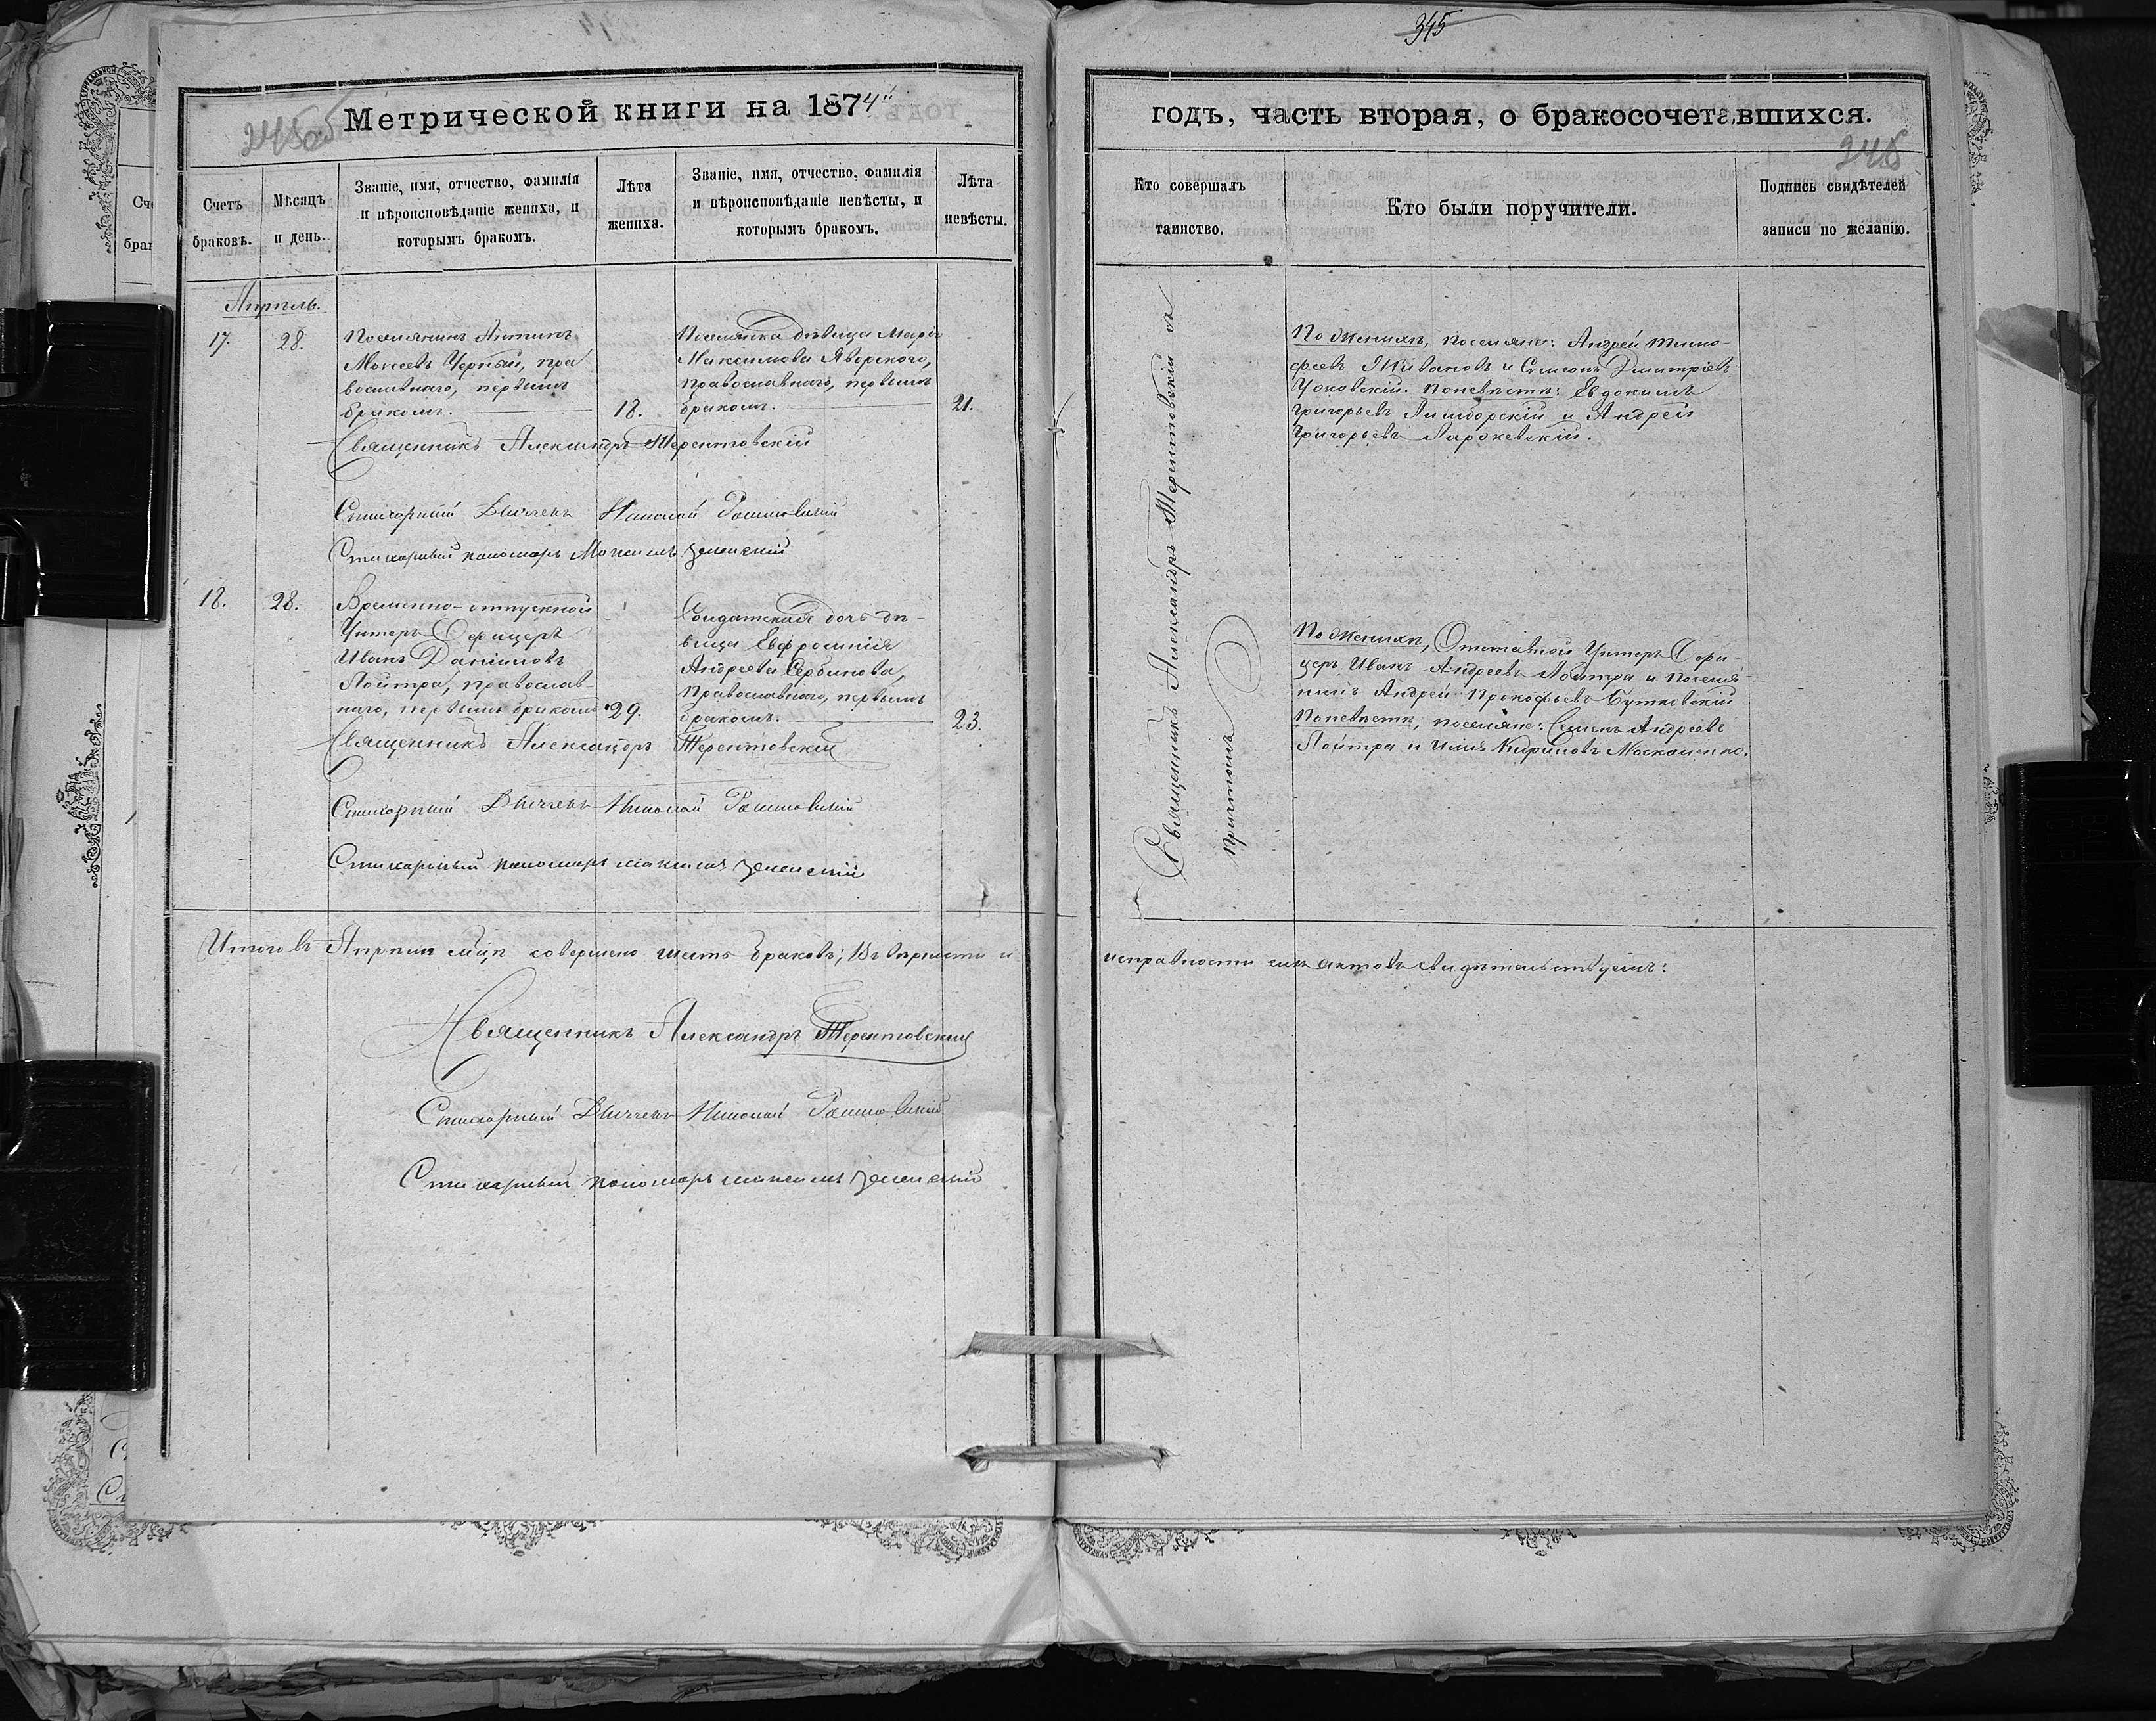 345
Метрической книги на 1874й
245об
Счетъ
браковъ.
Мѣсяцъ
и день.
Званіе, имя, отчество, фамилія
и вѣроисповѣданіе жениха, и
которымъ бракомъ.
Лѣта
жениха.
Званіе, имя, отчество, фамилія
и вѣроисповѣданіе невѣсты, и
которымъ бракомъ.
Лѣта
невѣсты.
Апрѣль.
17.
28.
Поселянинъ Антипъ
Моисеевъ Черный, пра
вославнаго, первымъ
бракомъ.
18.
Поселянка дѣвица Марія
Максимова Яворского,
православнаго, первымъ
бракомъ.
21.
Священникъ Александръ Терентовскій
Стихарный Дьячекъ Николай
Стихарный пономарь Максимъ Зеленскій
18.
28.
Временно-отпускной
Унтеръ Офицеръ
Иванъ Даніиловъ
Лойтра, православ
наго, первымъ бракомъ
29.
Солдатская дочь дѣ-
вица Евфросинія
Андреева Сербинова,
Православнаго, первымъ
бракомъ.
23.
Священникъ Александръ Терентовскій
Стихарный Дьячекъ Николай
Стихарный пономарь Максимъ Зеленскій
Итого въ Апрѣлѣ мцѣ совершено шесть браковъ; Въ вѣрности и
Священникъ Александръ Терентовский
Стихарный Дьячекъ Николай
Стихарный пономарь Максимъ Зеленскій
годъ, часть вторая, о бракосочетавшихся.
246
Кто совершалъ
таинство.
Кто были поручители.
Подпись свидѣтелей
записи по желанію.
Священникъ Александръ Терентовскій съ
причтомъ
По женихѣ, поселяне: Андрей Тимо-
феевъ Живановъ и Симеонъ Дмитріевъ
Чоковскій. По невѣстѣ: Евдокимъ
Григорьевъ и Андрей
Григорьевъ
По женихѣ, Отставной Унтеръ Офи-
церъ Иванъ Андреевъ Лойтра и поселя
нинъ Андрей Прокофьевъ Бутковскій
По невѣстѣ, поселяне: Семенъ Андреевъ
Лойтра и Илія Кириловъ Москаленко.
исправности сихъ актовъ свидѣтельствуемъ: